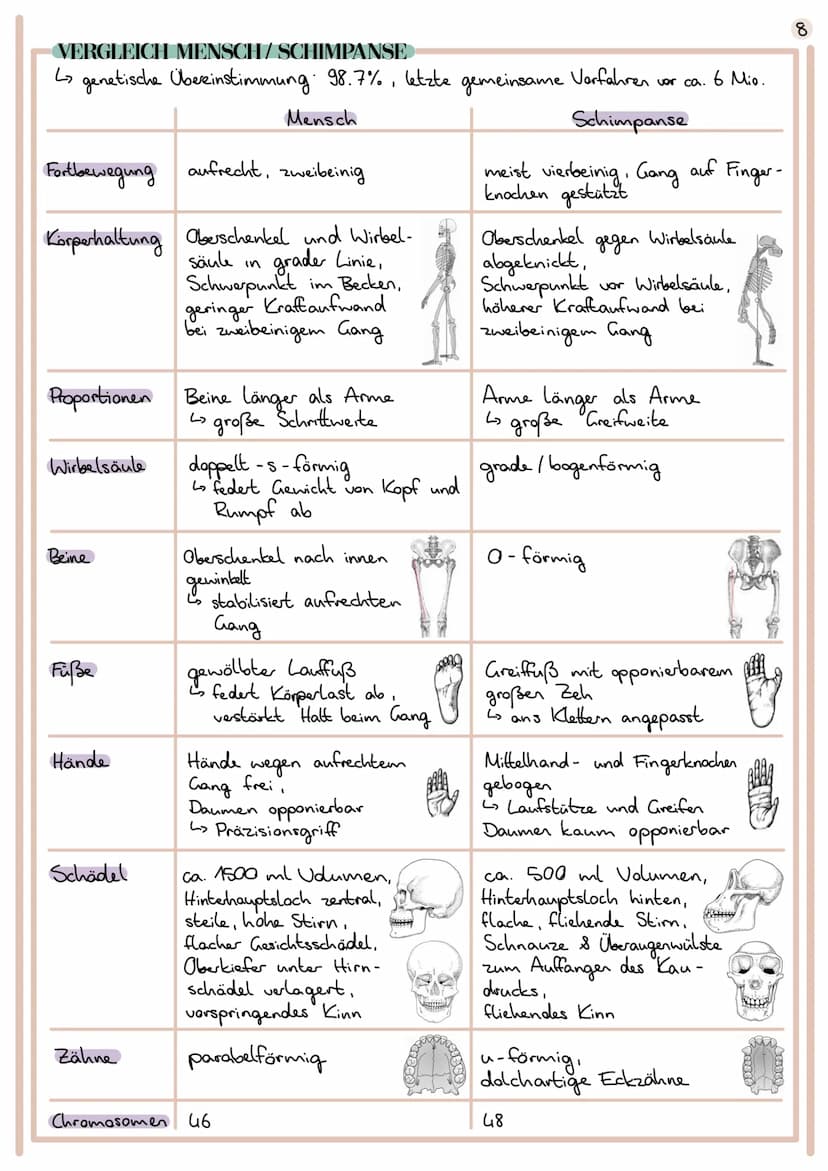 8
VERGLEICH MENSCH / SCHIMPANSE
↳ genetische Übereinstimmung: 98.7%, letzte gemeinsame Vorfahren vor ca. 6 Mio.
Mensch
Schimpanse
Fortbewegung
aufrecht, zweibeinig
meist vierbeinig, Gang auf Finger-
knochen gestützt
Körperhaltung
Oberschenkel und Wirbel-
säule in grader Linie,
Schwerpunkt im Becken,
geringer Kraftaufwand
bei zweibeinigem Gang
Oberschenkel gegen Wirbelsäule
abgeknickt,
Schwerpunkt vor Wirbelsäule,
höherer Kraftaufwand bei
zweibeinigem Gang
Proportionen
Beine länger als Arme
↳ große Schrittwerte
Arme länger als Arme
↳ große Greifweite
Wirbelsäule
doppelt - s - förmig
↳ federt Gewicht von Kopf und
Rumpf ab
grade / bogenförmig
Beine
Oberschenkel nach innen
gewinkelt
↳ stabilisiert aufrechten
Gang
O - förmig
Füße
gewölbter Lauffuß
↳ federt Körperlast ab,
verstärkt Halt beim Gang
Greiffuß mit opponierbarem
großen Zeh
↳ ans Klettern angepasst
Hände
Hände wegen aufrechtem
Gang frei,
Daumen opponierbar
↳ Präzisionsgriff
Mittelhand- und Fingerknochen
gebogen
↳ Laufstütze und Greifen
Daumen kaum opponierbar
Schädel
ca. 1500 ml Volumen,
Hinterhauptsloch zentral,
steile, hohe Stirn,
flacher Gesichtsschädel,
Oberkiefer unter Hirn-
schädel verlagert,
vorspringendes Kinn
ca. 500 ml Volumen,
Hinterhauptsloch hinten,
flache, fliehende Stirn,
Schnauze & Überaugenwülste
zum Auffangen des Kau-
drucks,
fliehendes Kinn
Zähne
parabelförmig
u-förmig,
dolchartige Eckzähne
Chromosomen
46
48